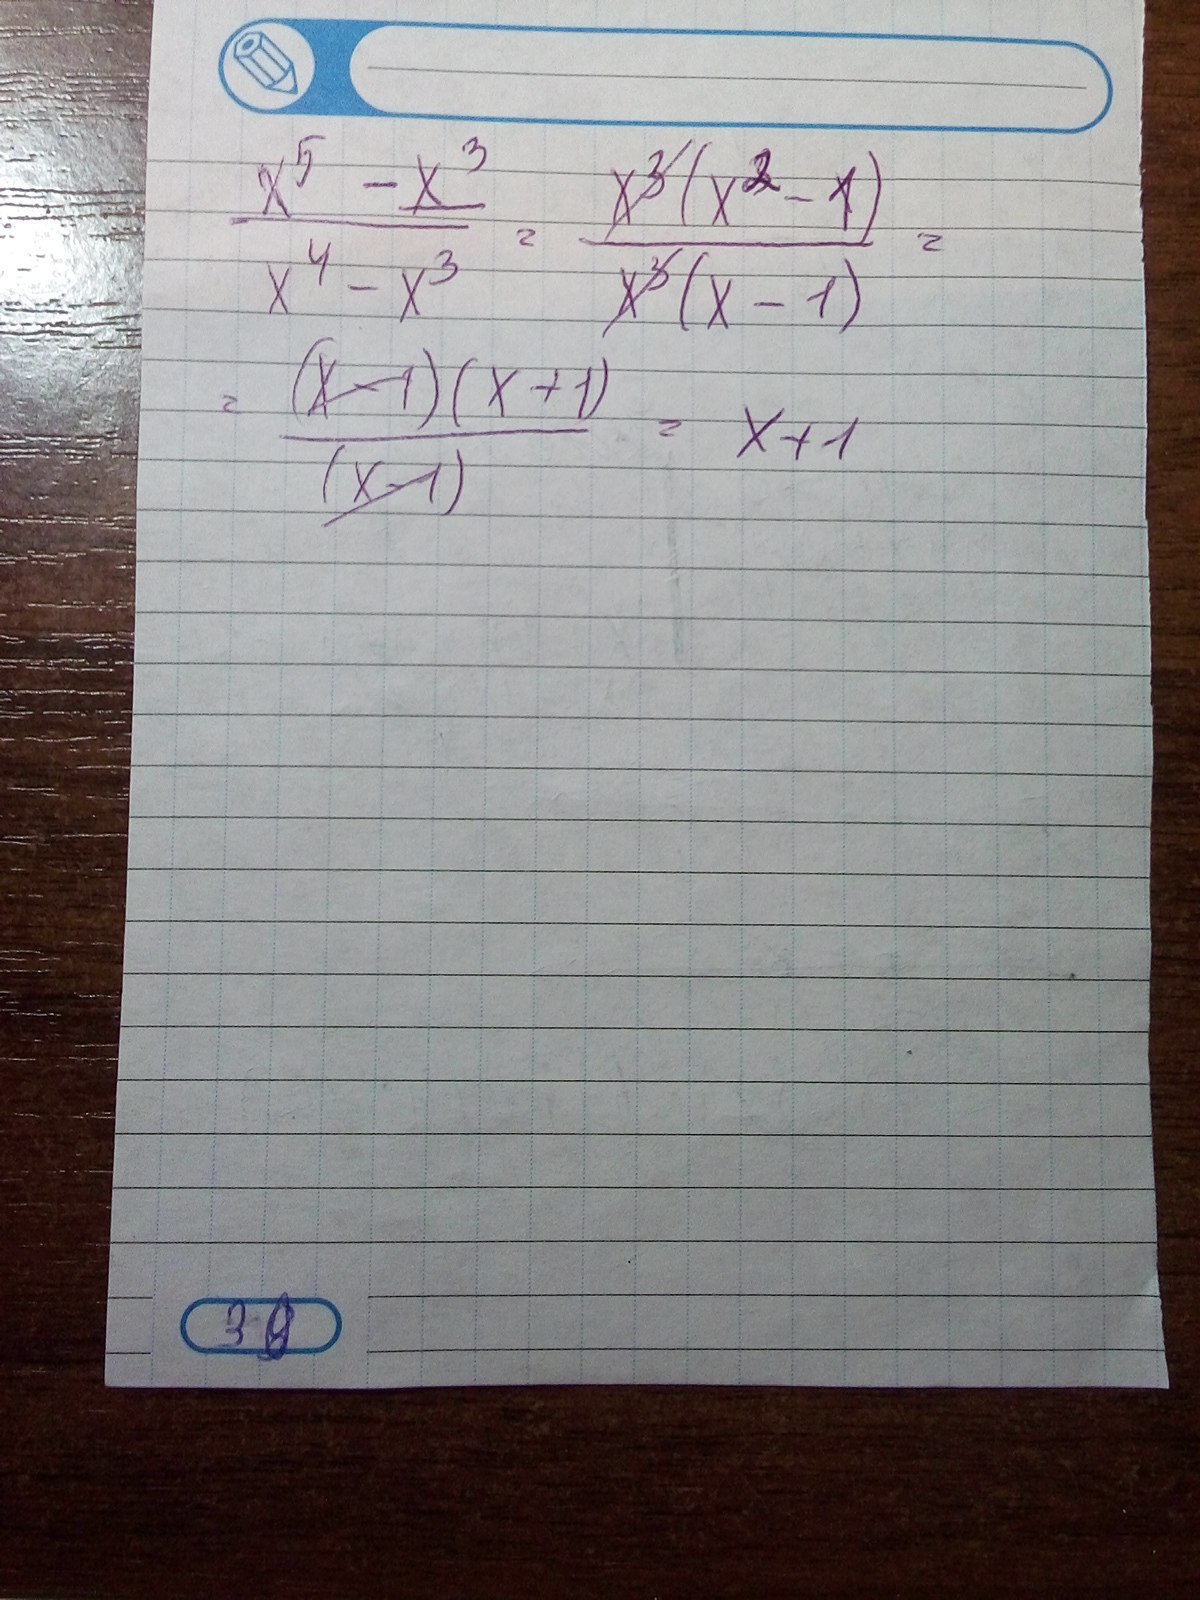 x⁵ - x³ / x⁴ - x³ = x³(x² - 1) / x³(x - 1) =
= (x - 1)(x + 1) / (x - 1) = x + 1